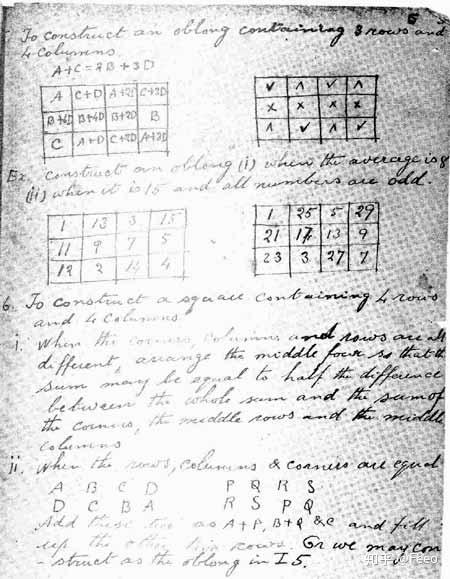 5
5. To construct an oblong containing 3 rows and
4 columns
A+C = 2B + 3D
A C+D A+2D C+3D
B+6D B+4D B+2D B
C A+D C+2D A+3D
✓ ∧ ✓ ∧
× × × ×
∧ ✓ ∧ ✓
Ex. Construct an oblong (i) when the average is 8
(ii) when it is 15 and all numbers are odd.
1 13 3 15
11 9 7 5
12 2 14 4
1 25 5 29
21 17 13 9
23 3 27 7
6. To construct a square containing 4 rows
and 4 columns
i. When the corners, columns and rows are all
different, arrange the middle four so that the
sum may be equal to half the difference
between the whole sum and the sum of
the corners, the middle rows and the middle
columns
ii. When the rows, columns & corners are equal
A B C D P Q R S
D C B A R S P Q
Add these two as A+P, B+Q &c and fill
up the other rows. Or we may con
-struct as the oblong in I 5.
知乎 @Feed